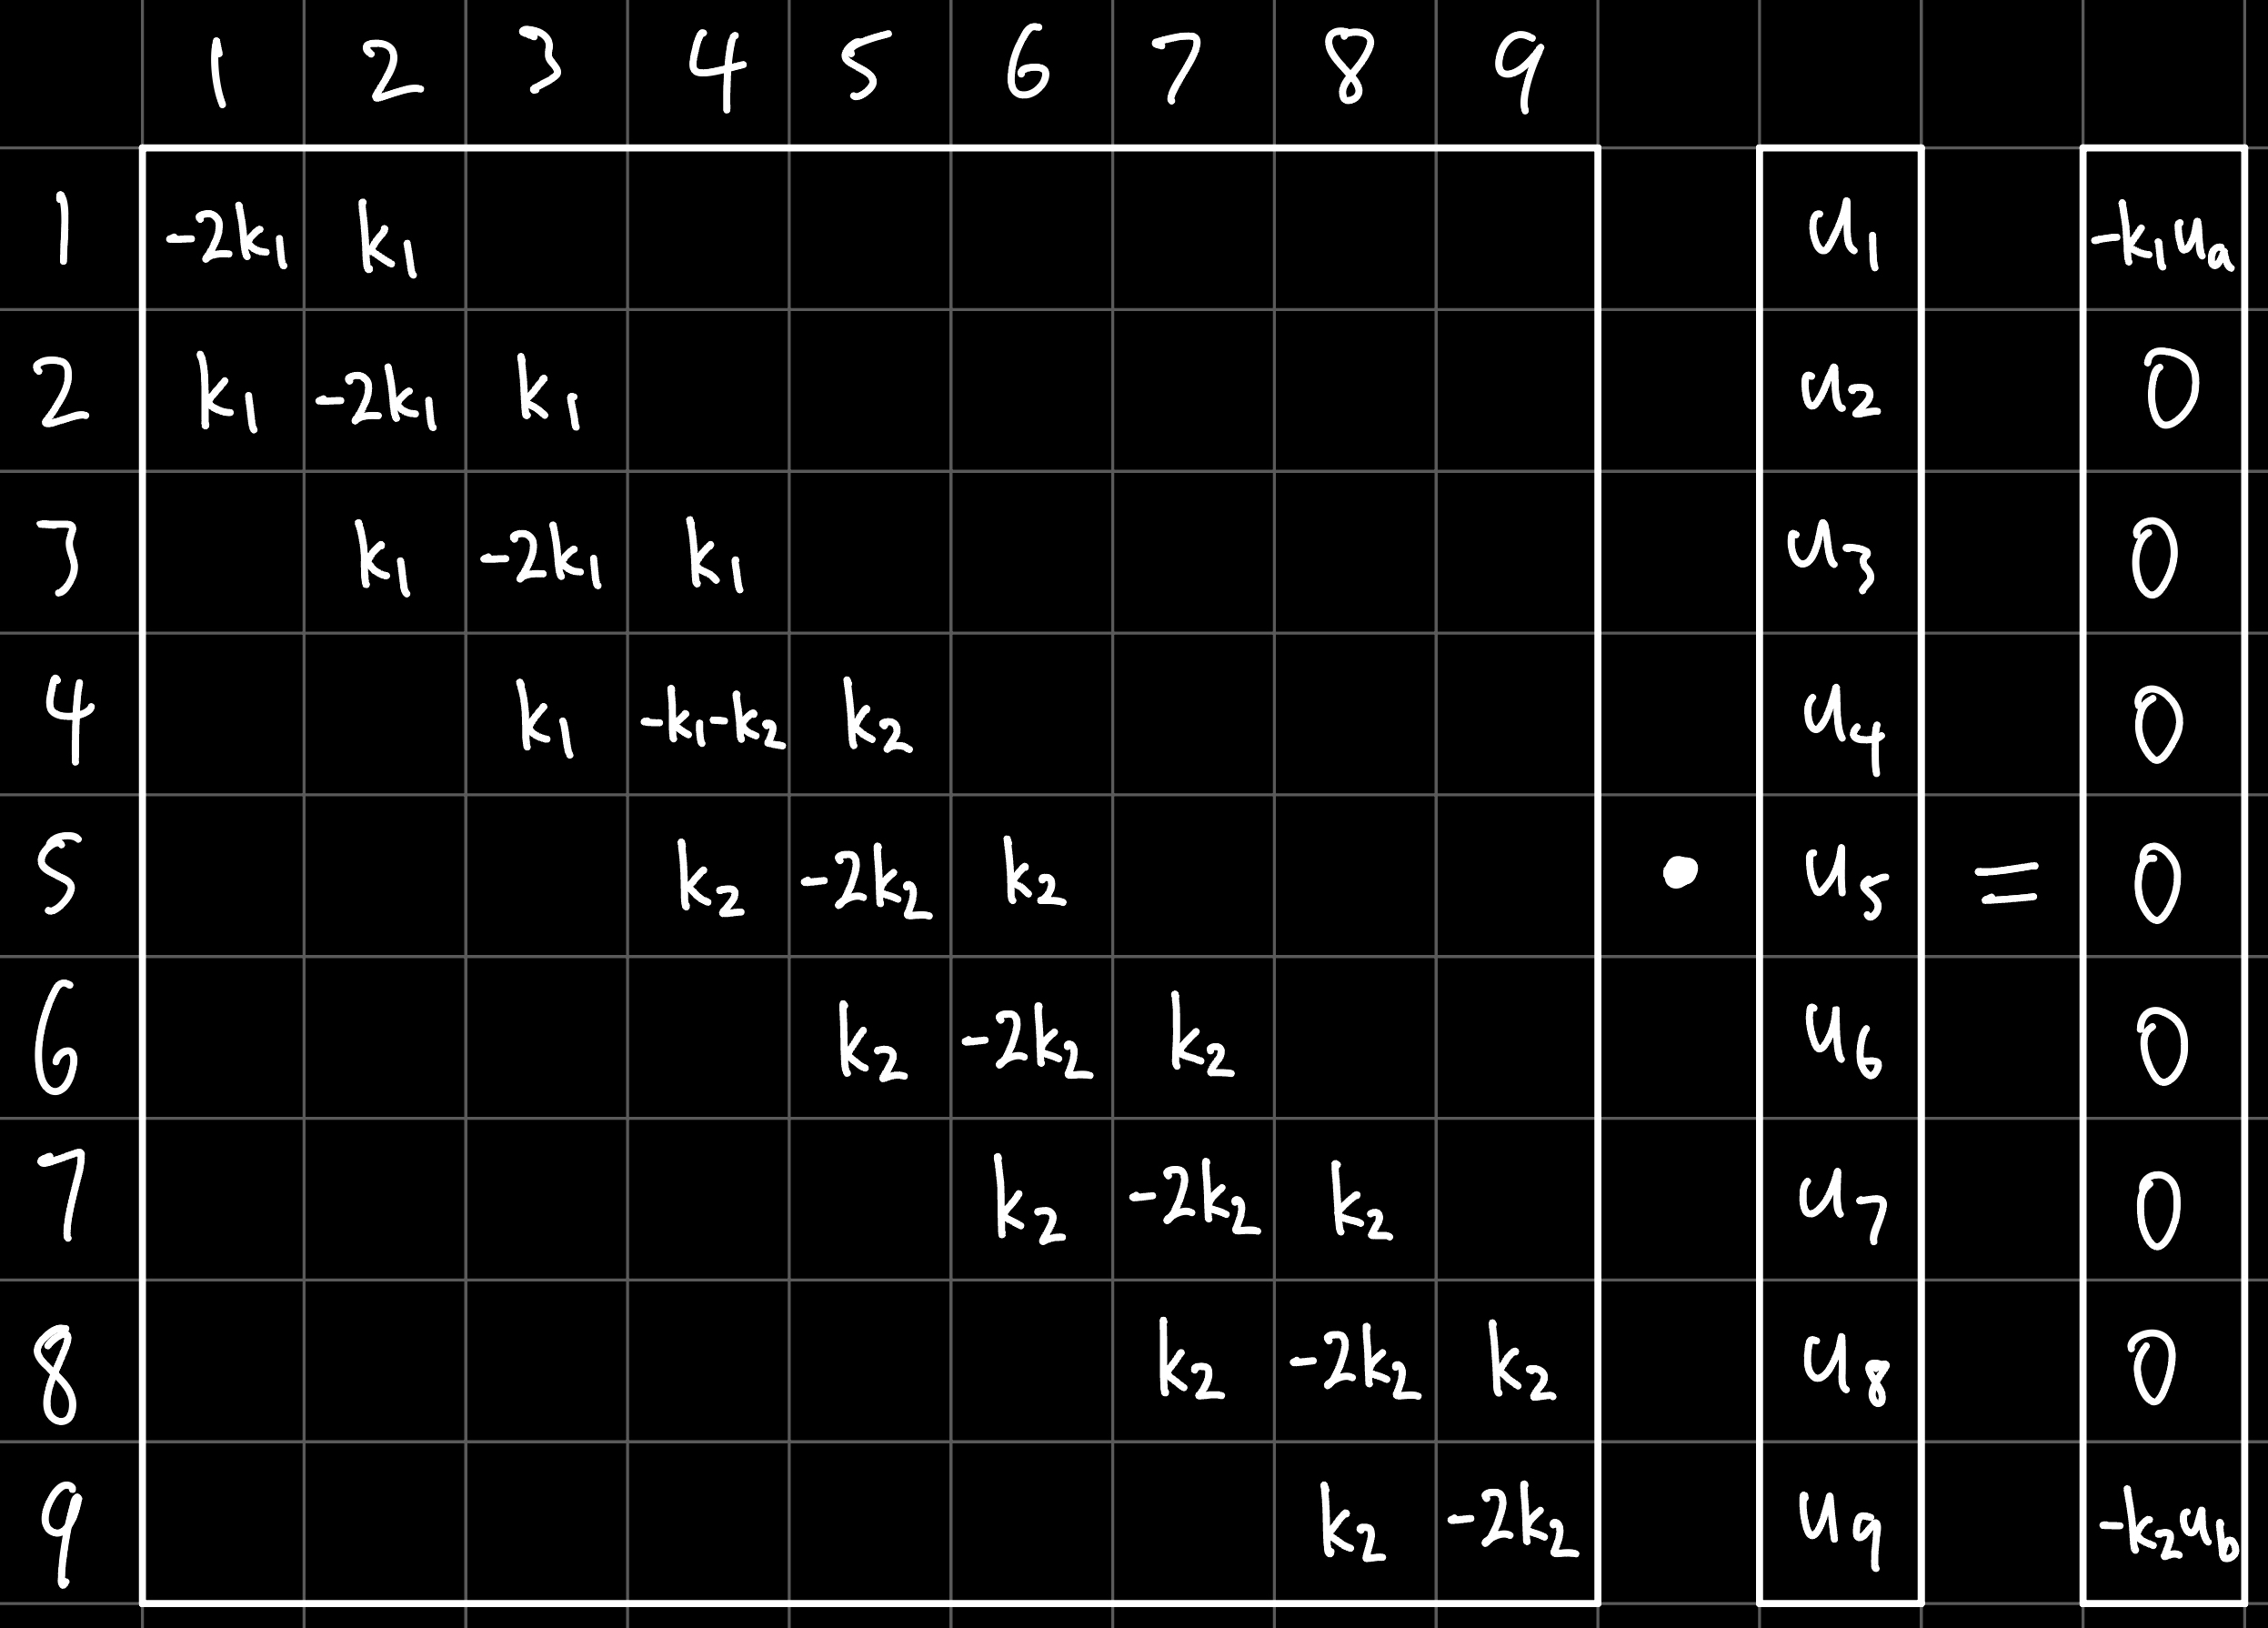 1 2 3 4 5 6 7 8 9
1 -2k₁ k₁ u₁ -k₁uₐ
2 k₁ -2k₁ k₁ u₂ 0
3 k₁ -2k₁ k₁ u₃ 0
4 k₁ -k₁-k₂ k₂ u₄ 0
5 k₂ -2k₂ k₂ • u₅ = 0
6 k₂ -2k₂ k₂ u₆ 0
7 k₂ -2k₂ k₂ u₇ 0
8 k₂ -2k₂ k₂ u₈ 0
9 k₂ -2k₂ u₉ -k₂u_b